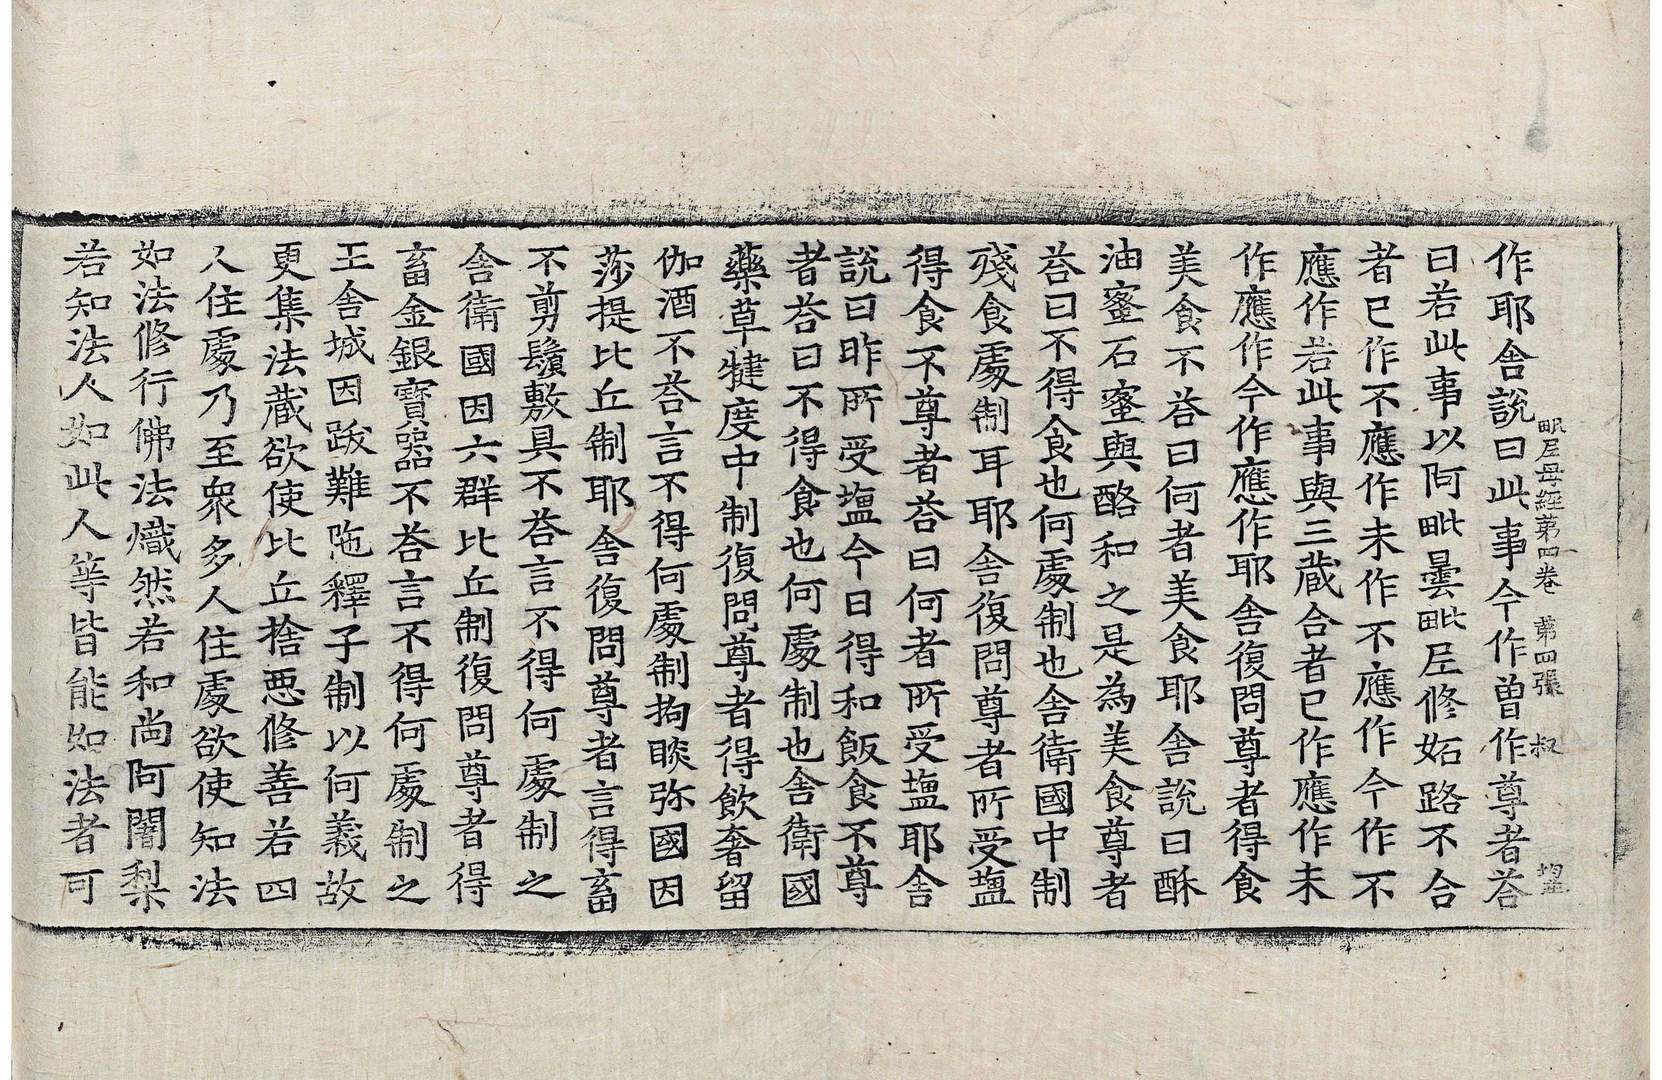 毗尼母經第四卷 第四張 叔
作耶舍說曰此事今作曽作尊者荅
曰若此事以阿毗曇毗尼修妬路不合
者已作不應作未作不應作今作不
應作若此事與三蔵合者已作應作未
作應作今作應作耶舍復問尊者得食
美食不荅曰何者美食耶舍說曰酥
油蜜石蜜與酪和之是為美食尊者
荅曰不得食也何處制也舍衛國中制
殘食處制耳耶舍復問尊者所受塩
得食不尊者荅曰何者所受塩耶舍
說曰昨所受塩今日得和飯食不尊
者荅曰不得食也何處制也舍衛國
藥草犍度中制復問尊者得飲奢留
伽酒不荅言不得何處制拘睒弥國因
莎提比丘制耶舍復問尊者言得畜
不剪鬚敷具不荅言不得何處制之
舍衛國因六群比丘制復問尊者得
畜金銀寶器不荅言不得何處制之
王舍城因跋難陁釋子制以何義故
更集法蔵欲使比丘捨惡修善若四
人住處乃至衆多人住處欲使知法
如法修行佛法熾然若和尚阿闍梨
若知法人如此人等皆能如法者可